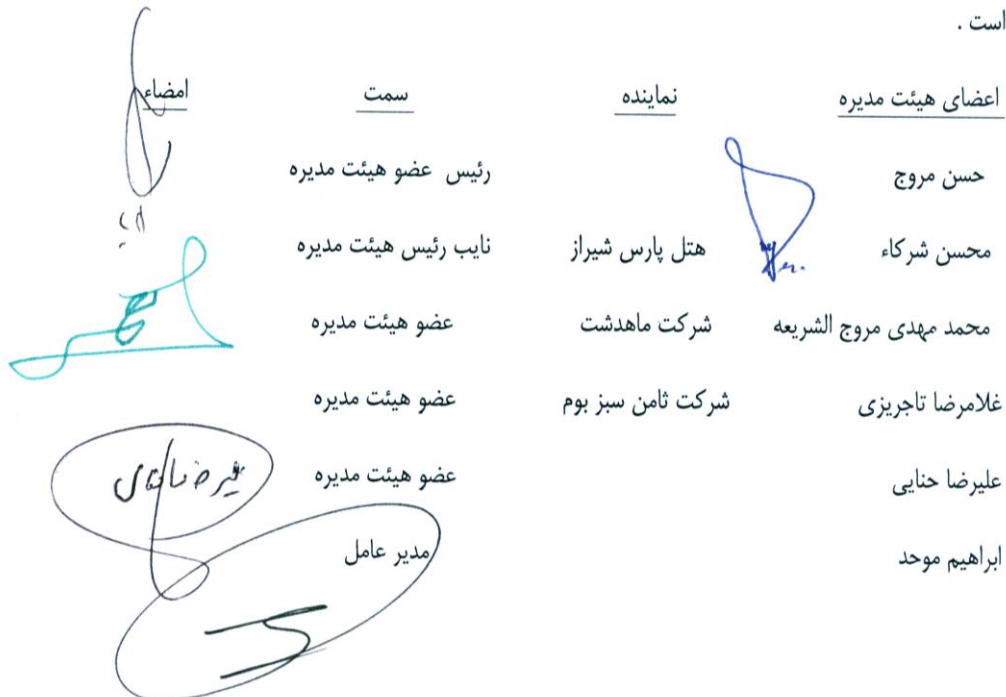 است .
اعضای هیئت مدیره نماینده سمت امضاء
حسن مروج رئیس عضو هیئت مدیره
محسن شرکاء هتل پارس شیراز نایب رئیس هیئت مدیره
محمد مهدی مروج الشریعه شرکت ماهدشت عضو هیئت مدیره
غلامرضا تاجریزی شرکت ثامن سبز بوم عضو هیئت مدیره
علیرضا حنایی عضو هیئت مدیره
ابراهیم موحد مدیر عامل